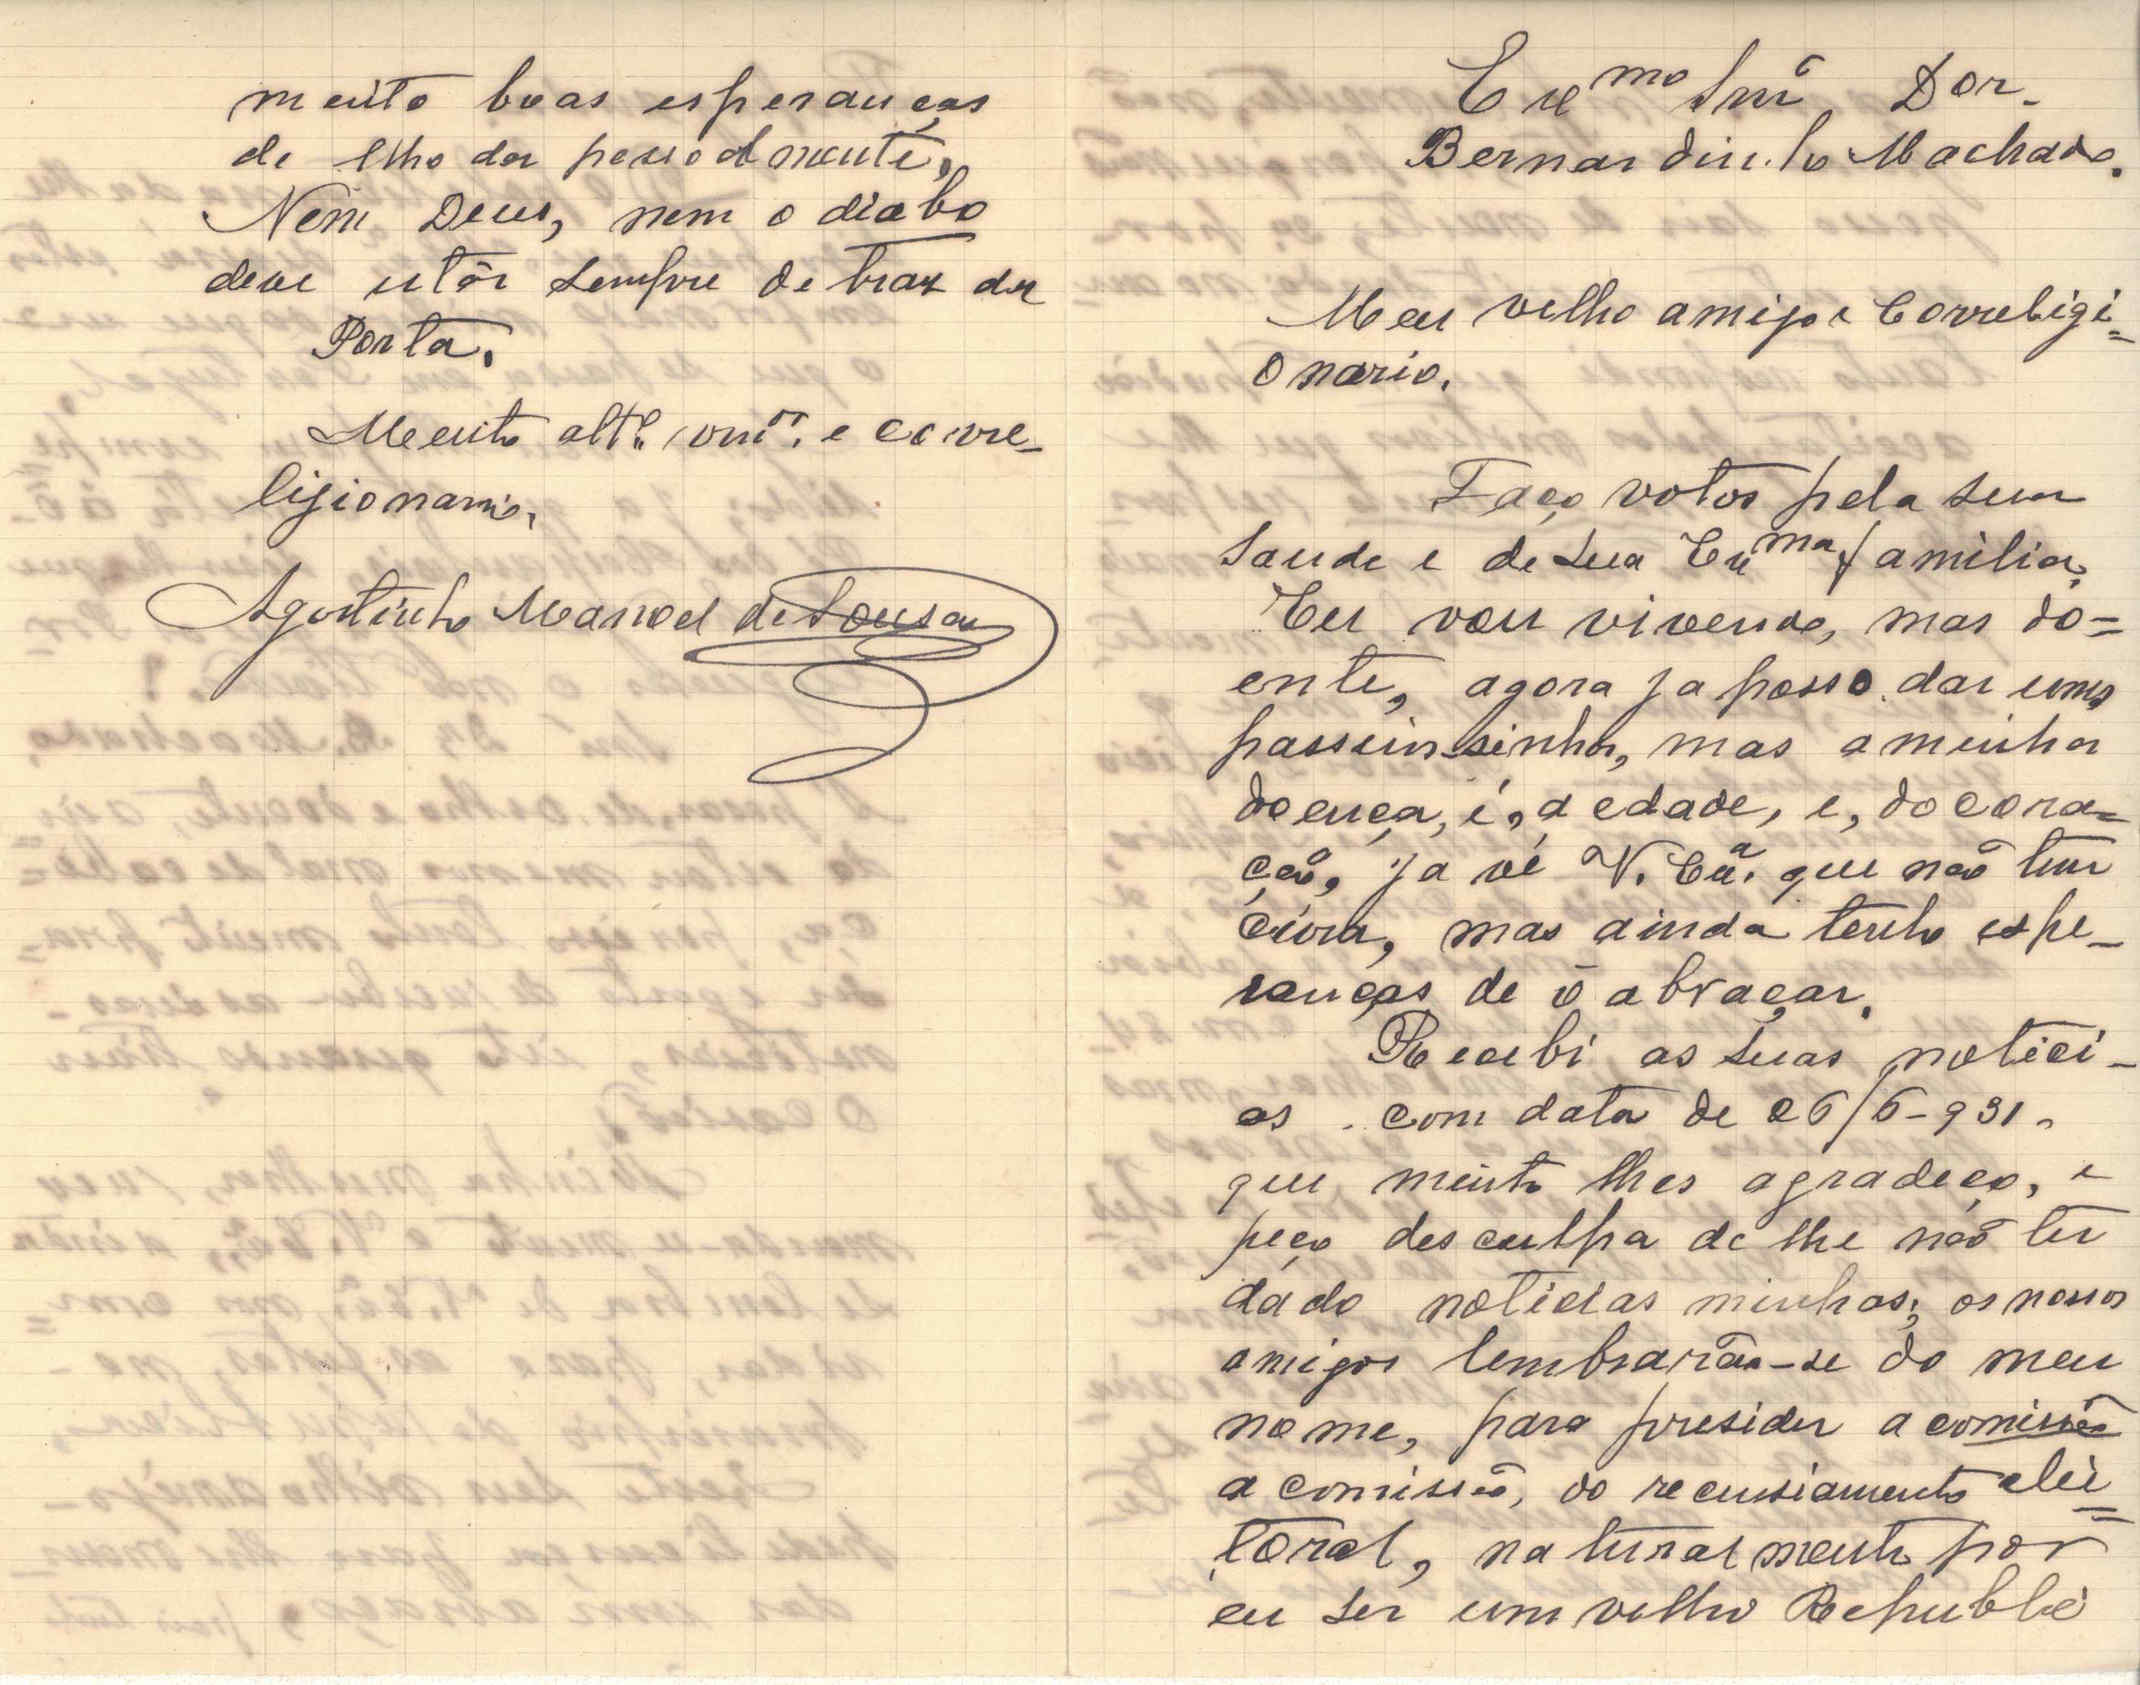 Exmo Snr Dor.
Bernardinho Machado.
Meu velho amigo e Correligi=
onario.
Faço votos pela sua
saude e de sua Exma familia.
Eu vou vivendo, mas do=
ente, agora ja posso dar uns
passeinsinhos, mas a minha
doença, é, a edade, e, do cora=
ção, ja vê V. Exa. que não tem
cura, mas ainda tenho espe-
ranças de o abraçar.
Recebi as suas notici-
as com data de 26/6-931.
que muito lhes agradeço, e
peço desculpa de lhe não ter
dado noticias minhas; os nossos
amigos lembrarão-se do meu
nome, para presider a comissão
a comissão, do recensiamento elei=
toral, naturalmente por
eu ser um velho Republi
muito boas esperanças
de lho dar pessoalmente,
Nem Deus, nem o diabo
deve estár sempre de traz da
Porta.
Muito attº e corre-
ligionario,
Agostinho Manoel de Sousa